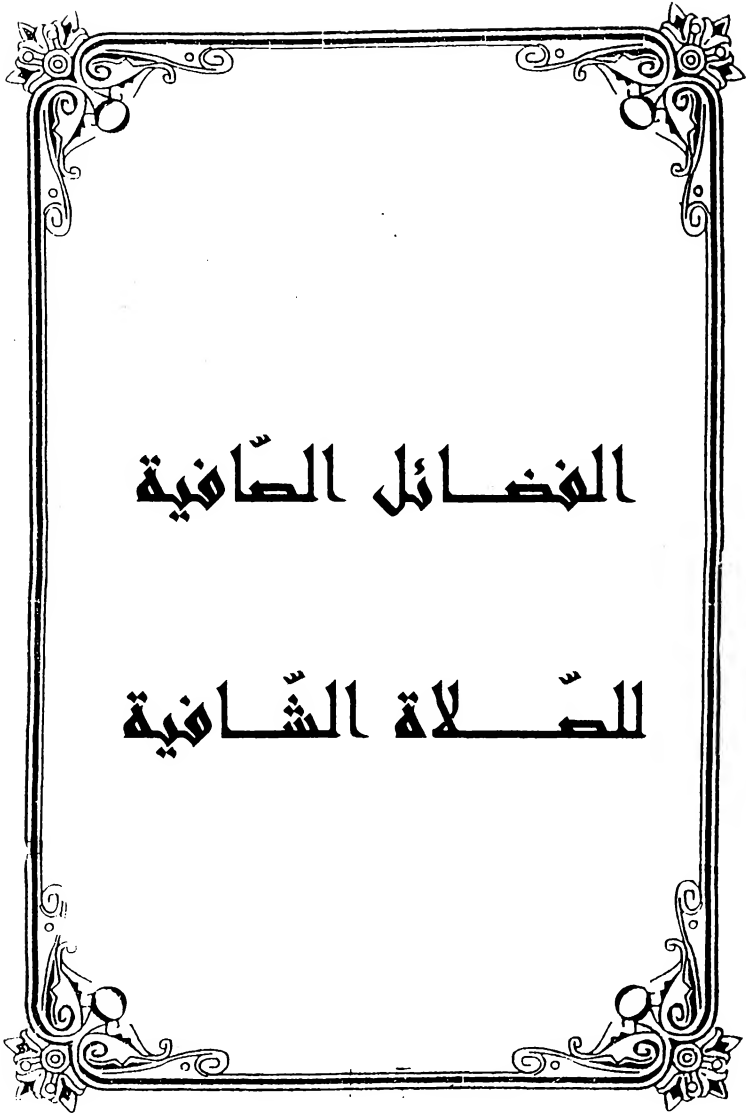 الفضائل الصّافية
للصّلاة الشّافية